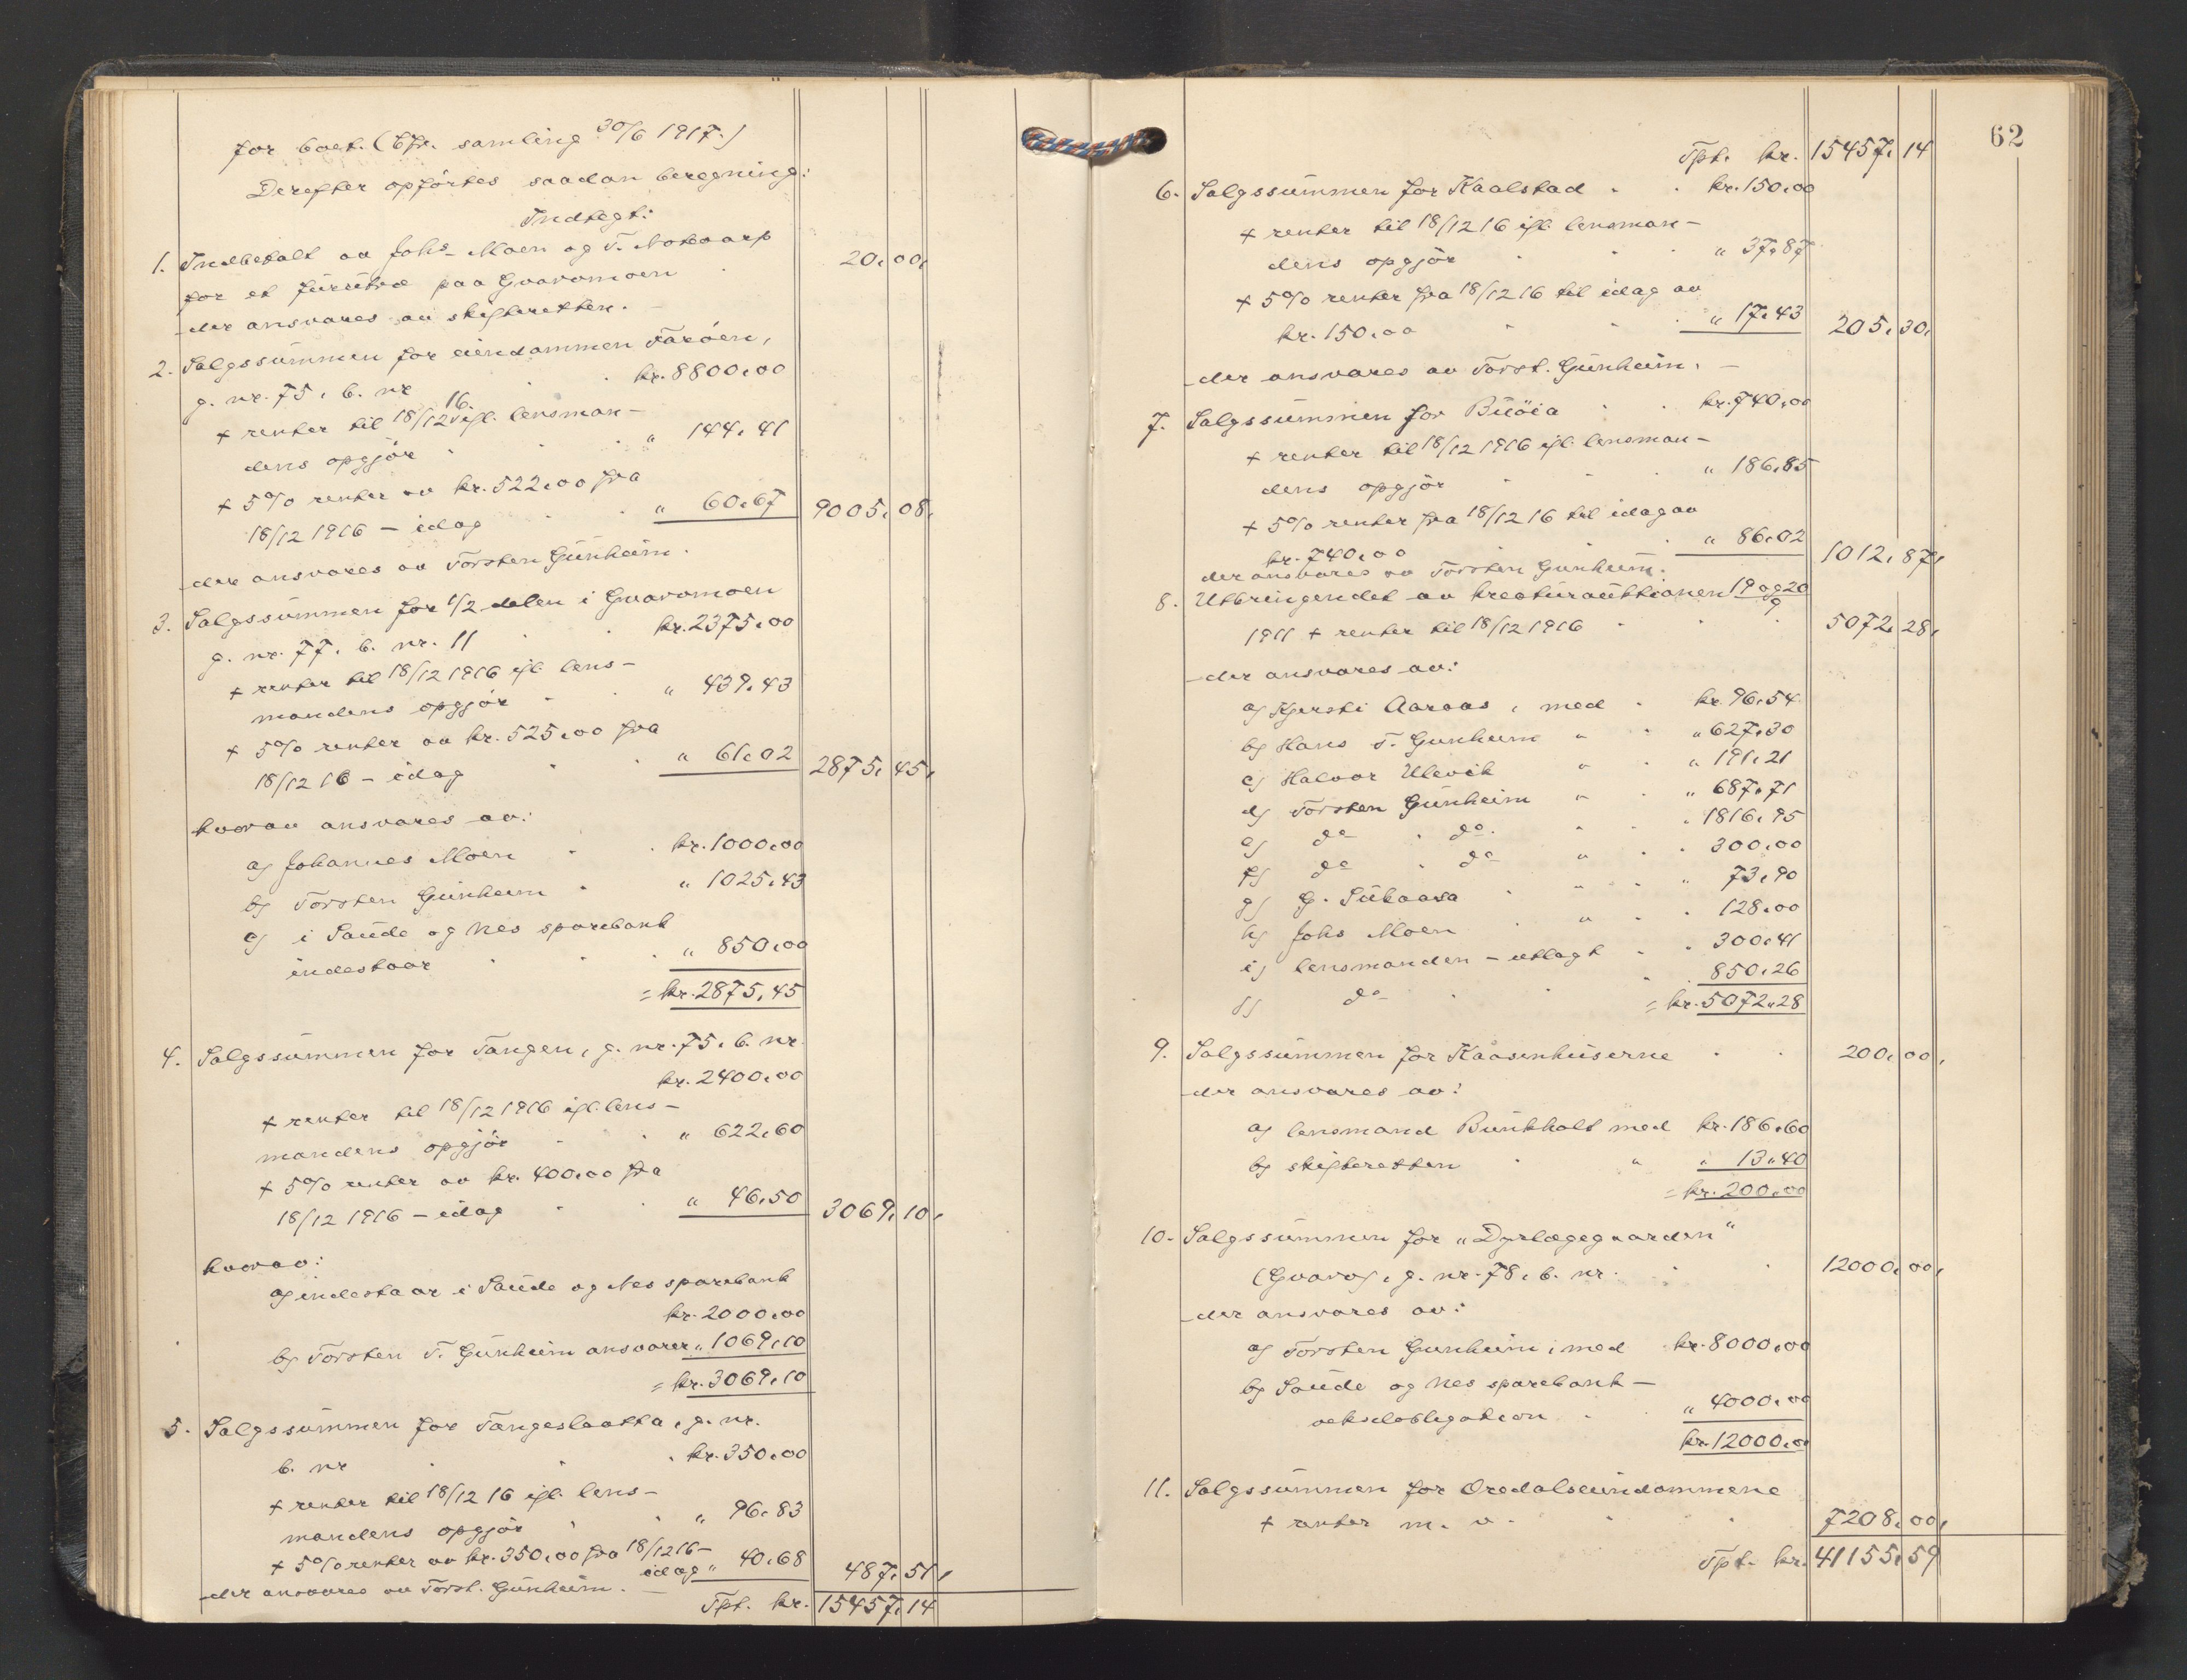 for boet. (Cfr. samling 30/6 1917.)
Derefter opførtes saadan beregning:
Indtegt:
1. Indbetalt av Johs. Moen og T. Notevarp
for et furutræ paa Gvavamoen 20,00,
der ansvares av skifteretten.
2. Salgssummen for eiendommen Farøen,
g. nr. 75, b. nr kr. 8800,00
+ renter til 18/12 16 ifl. lensman-
dens opgjør " 144,41
+ 5% renter av kr. 522,00 fra
18/12 1916 – idag " 60,67 9005,08,
der ansvares av Torsten Gunheim.
3. Salgssummen for 1/2 delen i Gvavamoen
g. nr. 77, b. nr. 11 kr. 2375,00
+ renter til 18/12 1916 ifl. lens-
mandens opgjør " 439,43
+ 5% renter av kr. 525,00 fra
18/12 16 – idag " 61,02 2875,45,
hvorav ansvares av:
a) Johannes Moen kr. 1000,00
b) Torsten Gunheim " 1025,43
c) i Saude og Nes sparebank
indestaar " 850,00
= kr. 2875,45
4. Salgssummen for Tangen, g. nr. 75, b. nr.
kr. 2400,00
+ renter til 18/12 1916 ifl. lens-
mandens opgjør " 622,60
+ 5% renter av kr. 400,00 fra
18/12 1916 – idag " 46,50 3069,10,
hvorav:
a) indestaar i Saude og Nes sparebank
kr. 2000,00
b) Torsten T. Gunheim ansvarer " 1069,10
= kr. 3069,10
5. Salgssummen for Tangeslaatta, g. nr.
b. nr kr. 350,00
+ renter til 18/12 16 ifl. lens-
mandens opgjør " 96,83
+ 5% renter av kr. 350,00 fra 18/12 16 –
idag " 40,68 487,51,
der ansvares av Torst. Gunheim.
Tpt. kr. 15457,14
62
Tpt. kr. 15457,14
6. Salgssummen for Kaalstad kr. 150,00
+ renter til 18/12 16 ifl. lensman-
dens opgjør " 37,87
+ 5% renter fra 18/12 16 til idag av
kr. 150,00 " 17,43 205,30,
der ansvares av Torst. Gunheim.
7. Salgssummen for Buöia kr. 740,00
+ renter til 18/12 1916 ifl. lensman-
dens opgjør " 186,85
+ 5% renter fra 18/12 16 til idag av
kr. 740,00 " 86,02 1012,87,
der ansvares av Torsten Gunheim.
8. Utbringendet av kreaturauktionen 19 og 20/9
1911 + renter til 18/12 1916 5072,28,
der ansvares av:
a) Kjersti Aaraas, med kr. 96,54
b) Hans T. Gunheim " " 627,30
c) Halvor Ulevik " " 191,21
d) Torsten Gunheim " " 687,71
e) do do. " " 1816,95
f) do do " 300,00
g) G. Subaasa " " 73,90
h) Johs Moen " 128,00
i) lensmanden – utlagt 300,41
j) do 850,26
= kr. 5072,28
9. Salgssummen for Kaasenhuserne 200,00,
der ansvares av:
a) lensmand Bunkholt med kr. 186,60
b) skifteretten " " 13,40
= kr. 200,00
10. Salgssummen for "Dyrlægegaarden"
(Gvarv), g. nr. 78, b. nr. 12000,00,
der ansvares av:
a) Torsten Gunheim, med kr. 8000,00
b) Saude og Nes sparebank –
vekselobligation " 4000,00
kr. 12000,00
11. Salgssummen for Oredalseiendommene
+ renter m. v. 7208,00,
Tpt. kr. 41155,59